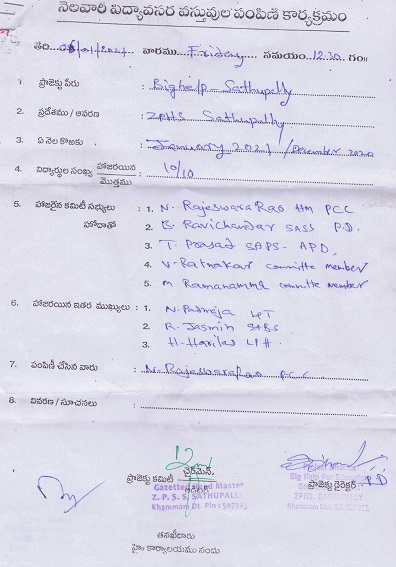 నెలవారీ విద్యావసర వస్తువుల పంపిణీ కార్యక్రమం
తేది: 08/01/2021 వారము Friday సమయం: 12.30 గం॥
1. ప్రాజెక్టు పేరు : Bighelp - Sathupally
2. ప్రదేశము / ఆవరణ : ZPHS Sathupally
3. ఏ నెల కొఱకు : January 2021 / December 2020
4. విద్యార్థుల సంఖ్య హాజరయిన / మొత్తము : 10/10
5. హాజరైన కమిటీ సభ్యులు : 1. N. Rajeswara Rao HM PCC
హోదాతో 2. B. Ravichandar SASS P.D.
3. T. Prasad SAPS - APD,
4. V. Ratnakar committe member
5. M Ramanamma committe member
6. హాజరయిన ఇతర ముఖ్యులు : 1. N. Padmaja
2. R. Jasmin SABS
3. H. Harilal
7. పంపిణీ చేసిన వారు : N. Rajeswara Rao P.C.C
8. వివరణ / సూచనలు :
ప్రాజెక్టు కమిటీ చైర్మెన్,
ప్రాజెక్టు డైరెక్టర్ P.D
Gazetted Head Master
Z. P. S. S. SATHUPALLI
Khammam Dt. Pin : 507303
Project Director
Big Help For Education
ZPHS. SATHUPALLY
తనఖీదారు
హై కార్యాలయము నందు